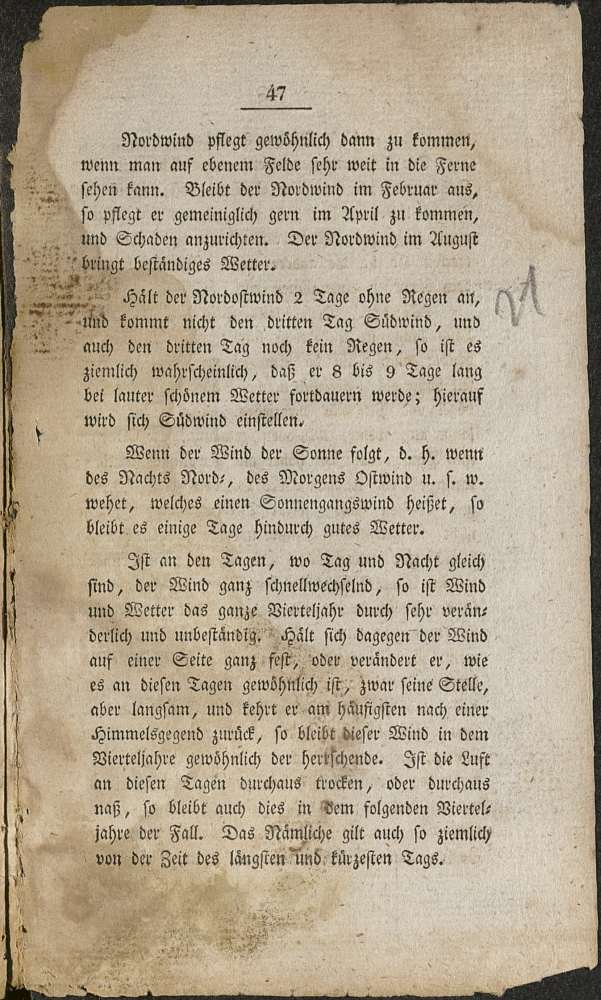 47
Nordwind pflegt gewöhnlich dann zu kommen,
wenn man auf ebenem Felde sehr weit in die Ferne
sehen kann. Bleibt der Nordwind im Februar aus,
so pflegt er gemeiniglich gern im April zu kommen,
und Schaden anzurichten. Der Nordwind im August
bringt beständiges Wetter.
Hält der Nordostwind 2 Tage ohne Regen an,
und kommt nicht den dritten Tag Südwind, und
auch den dritten Tag noch kein Regen, so ist es
ziemlich wahrscheinlich, daß er 8 bis 9 Tage lang
bei lauter schönem Wetter fortdauern werde; hierauf
wird sich Südwind einstellen.
Wenn der Wind der Sonne folgt, d. h. wenn
des Nachts Nord-, des Morgens Ostwind u. s. w.
wehet, welches einen Sonnengangswind heißet, so
bleibt es einige Tage hindurch gutes Wetter.
Ist an den Tagen, wo Tag und Nacht gleich
sind, der Wind ganz schnellwechselnd, so ist Wind
und Wetter das ganze Vierteljahr durch sehr verän-
derlich und unbeständig. Hält sich dagegen der Wind
auf einer Seite ganz fest, oder verändert er, wie
es an diesen Tagen gewöhnlich ist, zwar seine Stelle,
aber langsam, und kehrt er am häufigsten nach einer
Himmelsgegend zurück, so bleibt dieser Wind in dem
Vierteljahre gewöhnlich der herrschende. Ist die Luft
an diesen Tagen durchaus trocken, oder durchaus
naß, so bleibt auch dies in dem folgenden Viertel-
jahre der Fall. Das Nämliche gilt auch so ziemlich
von der Zeit des längsten und kürzesten Tags.